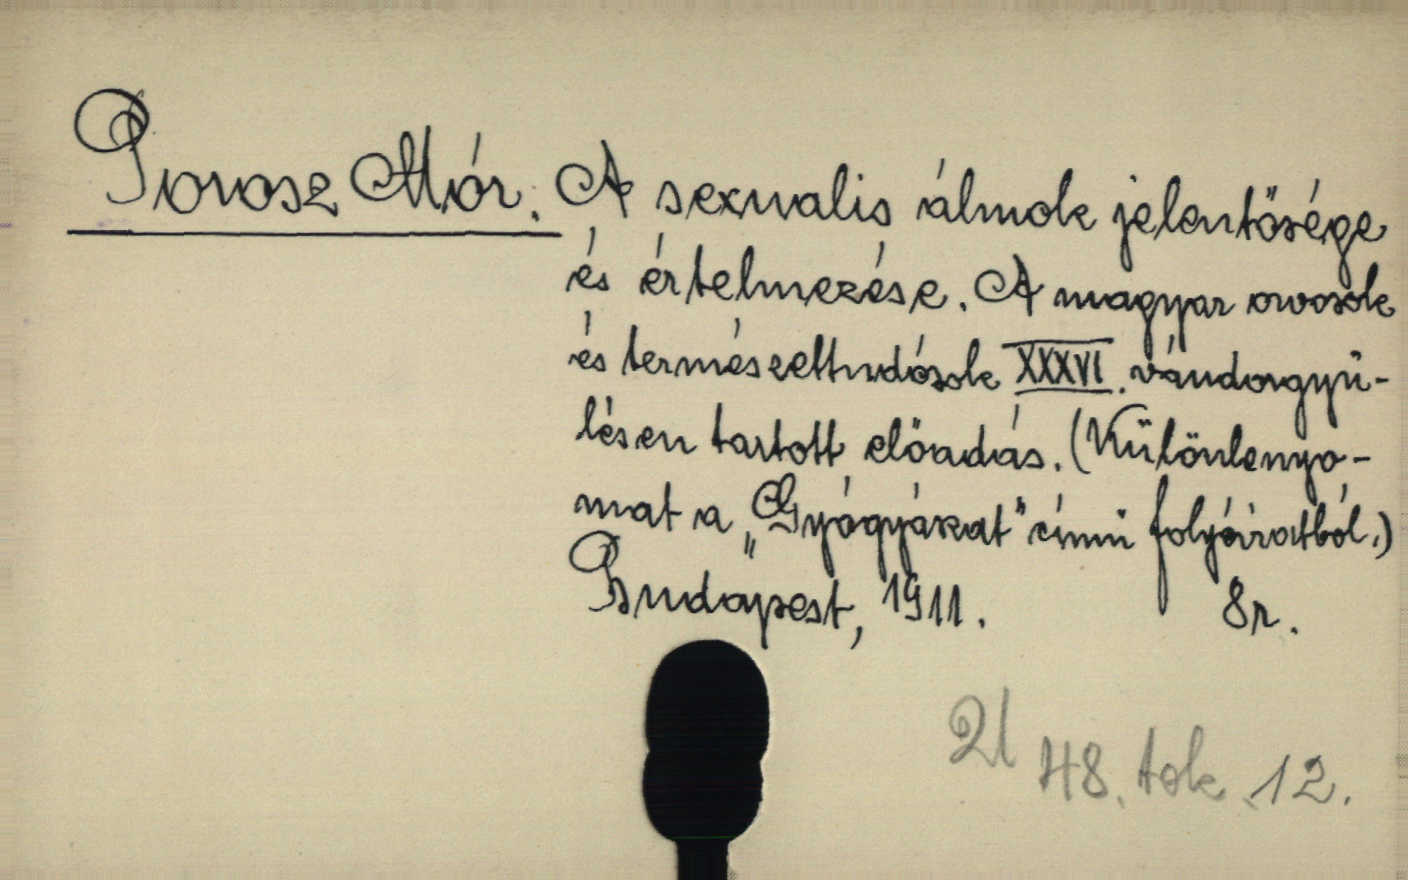 Porosz Mór. A sexualis álmok jelentősége
és értelmezése. A magyar orvosok
és természettudósok XXXVI. vándorgyü-
lésen tartott előadás. (Különlenyo-
mat a „Gyógyászat" című folyóiratból.)
Budapest, 1911. 8r.
21 48. tok 12.